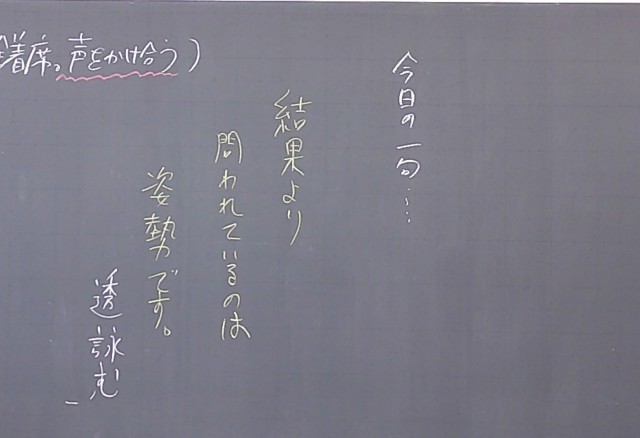 着席。声をかけ合う)
今日の一句……
結果より
問われているのは
姿勢です。
透詠む